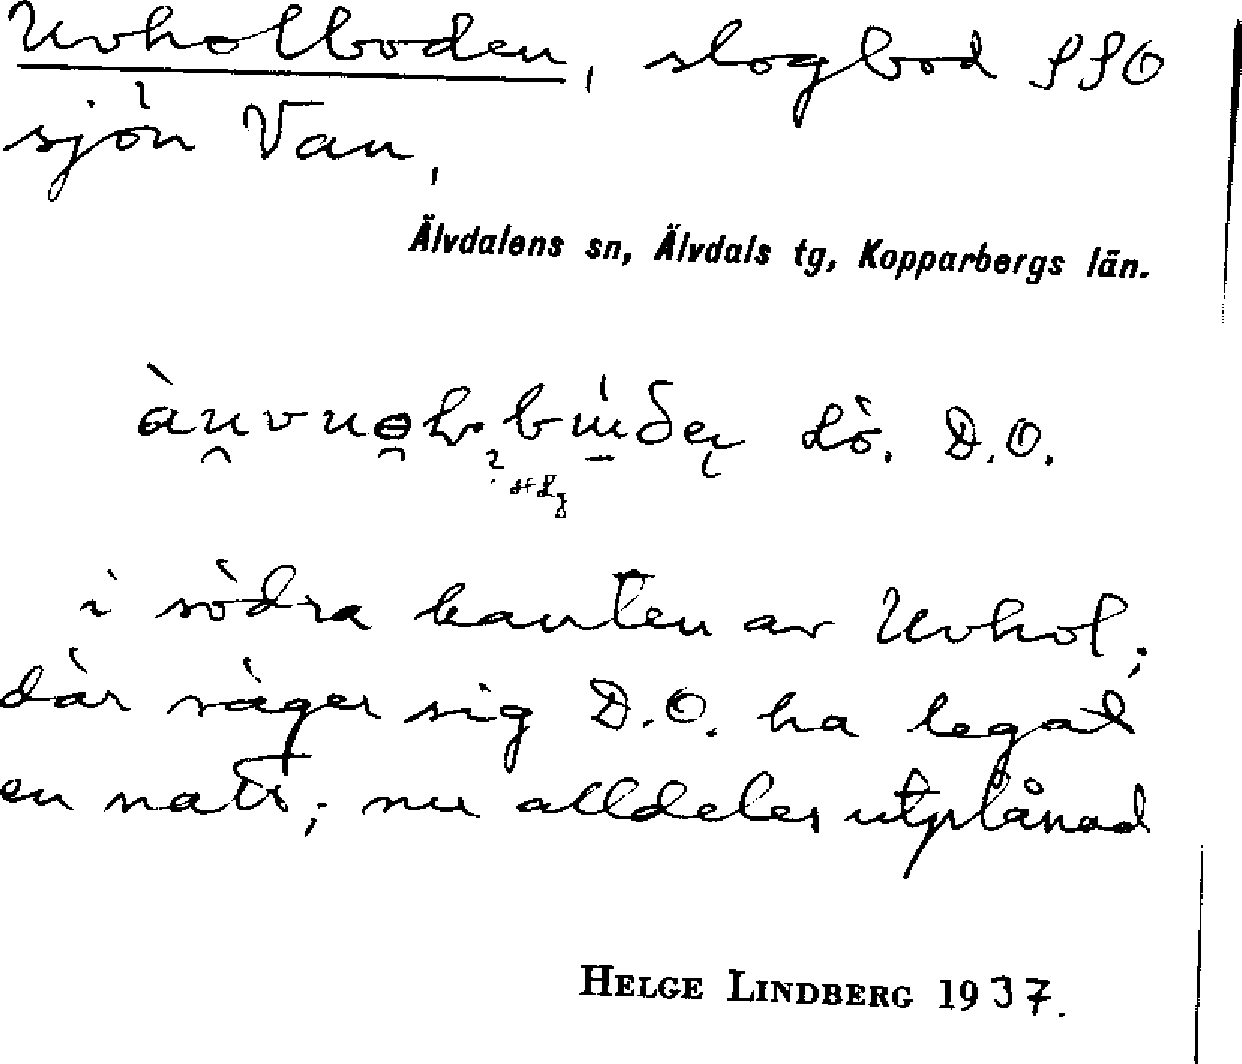 Uvholboden, slogbod SSO
sjön Van,
Älvdalens sn, Älvdals tg, Kopparbergs län.
Lö. D.O.
i södra kanten av Uvhol;
där säger sig D.O. ha legat
en natt; nu alldeles utplånad
HELGE LINDBERG 1937.